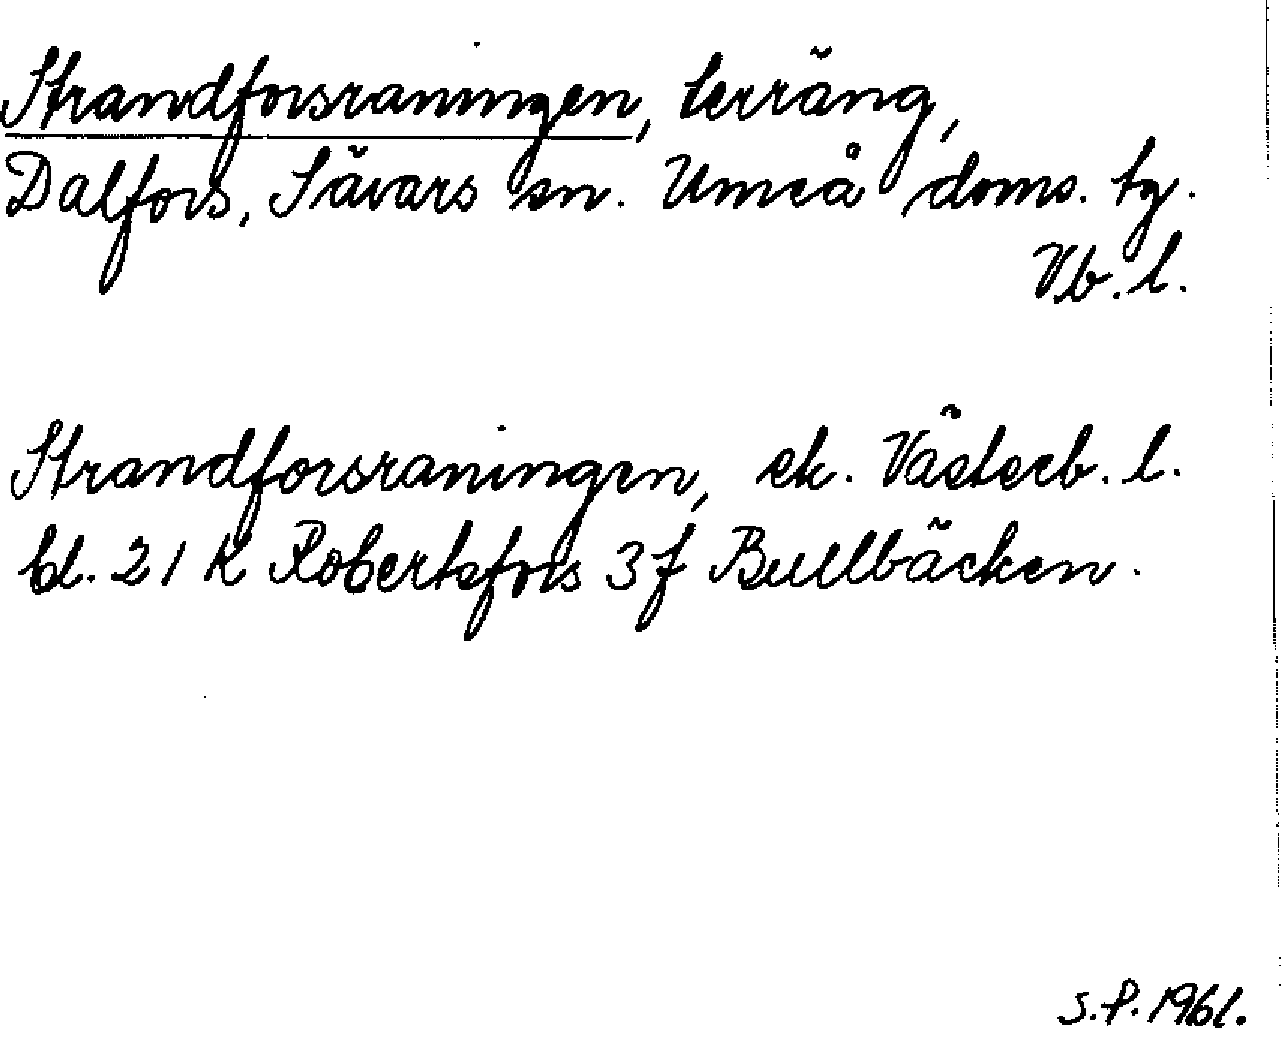 Strandforsraningen, terräng,
Dalfors, Sävars sn. Umeå doms. tg.
Vb. l.
Strandforsraningen, ek. Västerb. l.
bl. 21 K Robertsfors 3f Bullbäcken.
S.P. 1961.